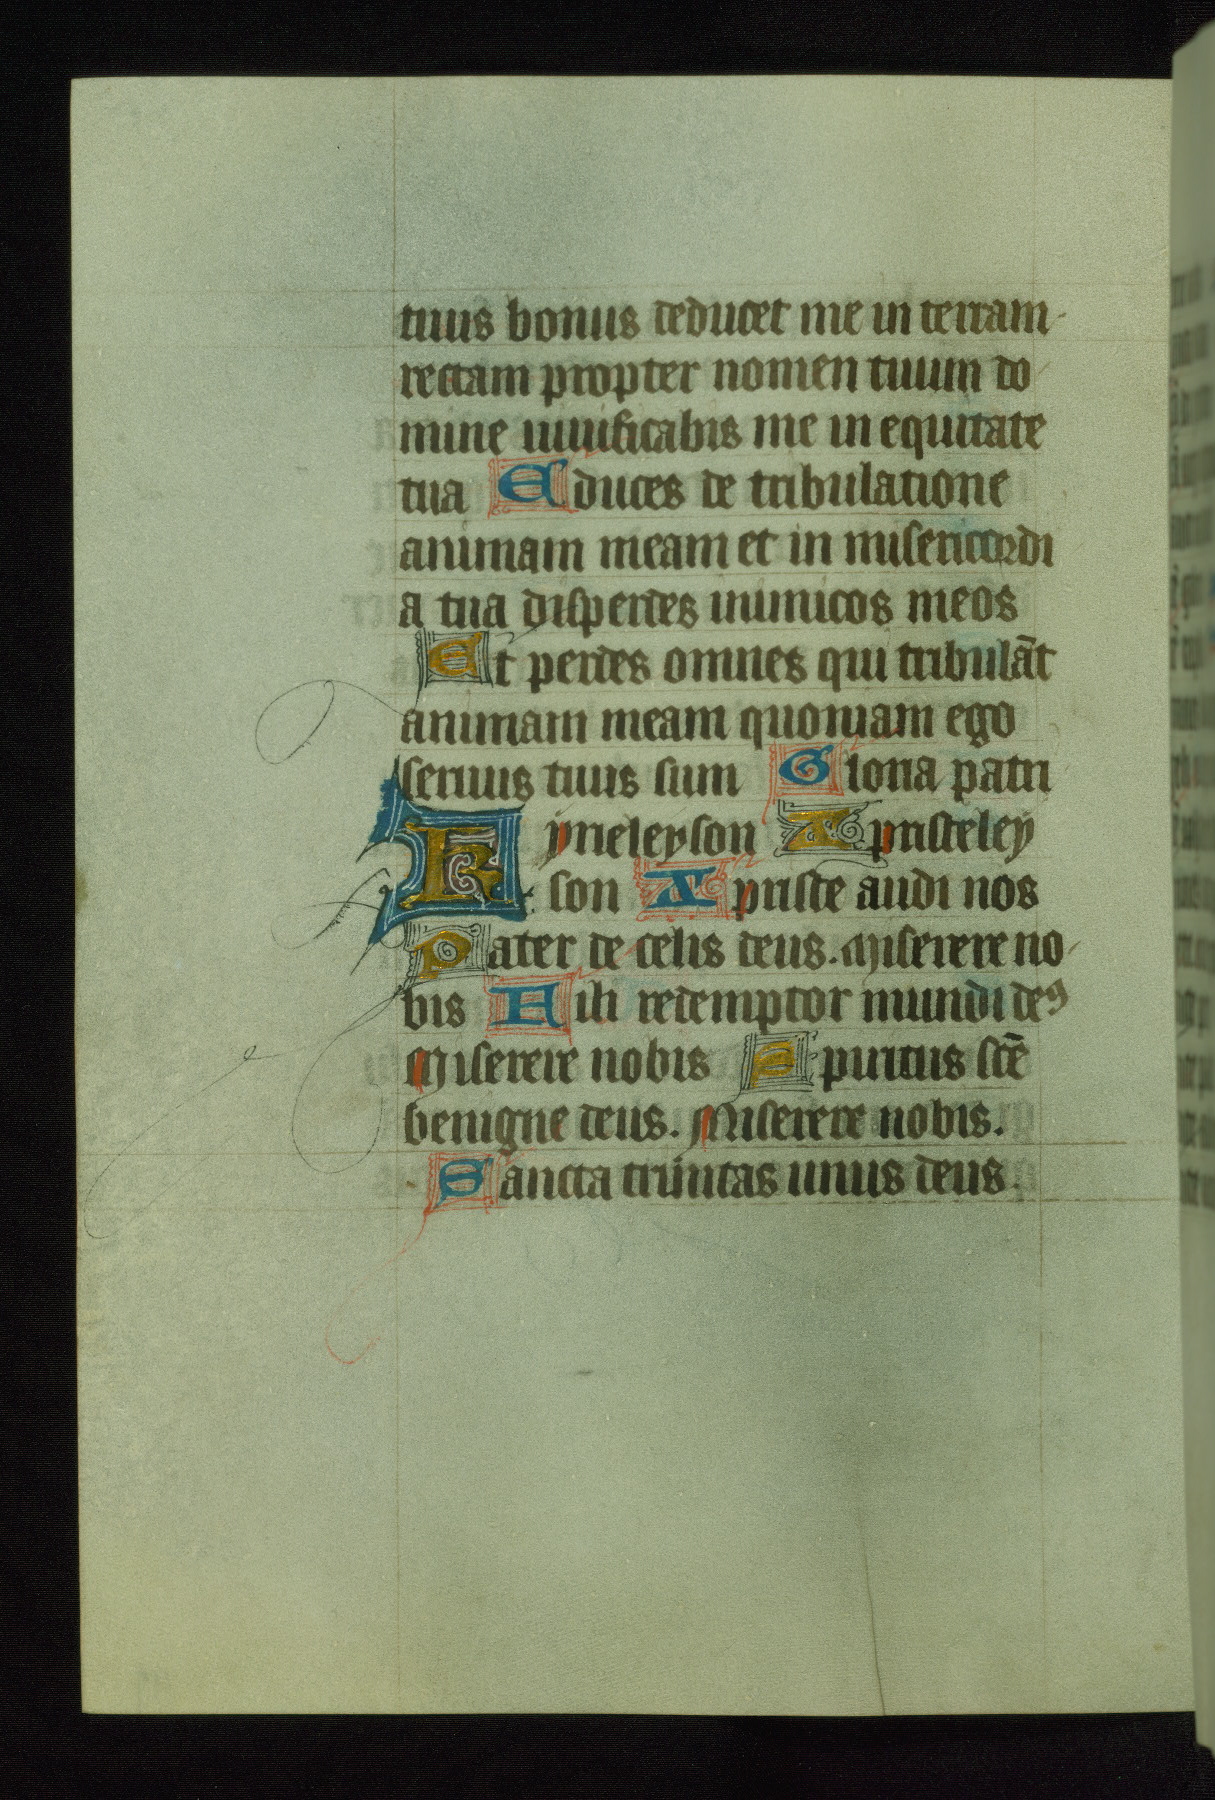 tuus bonus deducet me in terram
rectam propter nomen tuum do
mine uiuificabis me in equitate
tua Educes de tribulatione
animam meam et in misericordi
a tua disperdes inimicos meos
Et perdes omnes qui tribulāt
animam meam quoniam ego
seruus tuus sum Gloria patri
Kyrieleyson Xpristeley
son Xpriste audi nos
Pater de celis deus. Miserere no
bis Fili redemptor mundi deꝰ
Miserere nobis Spiritus scē
benigne deus. Miserere nobis.
Sancta trinitas unus deus.